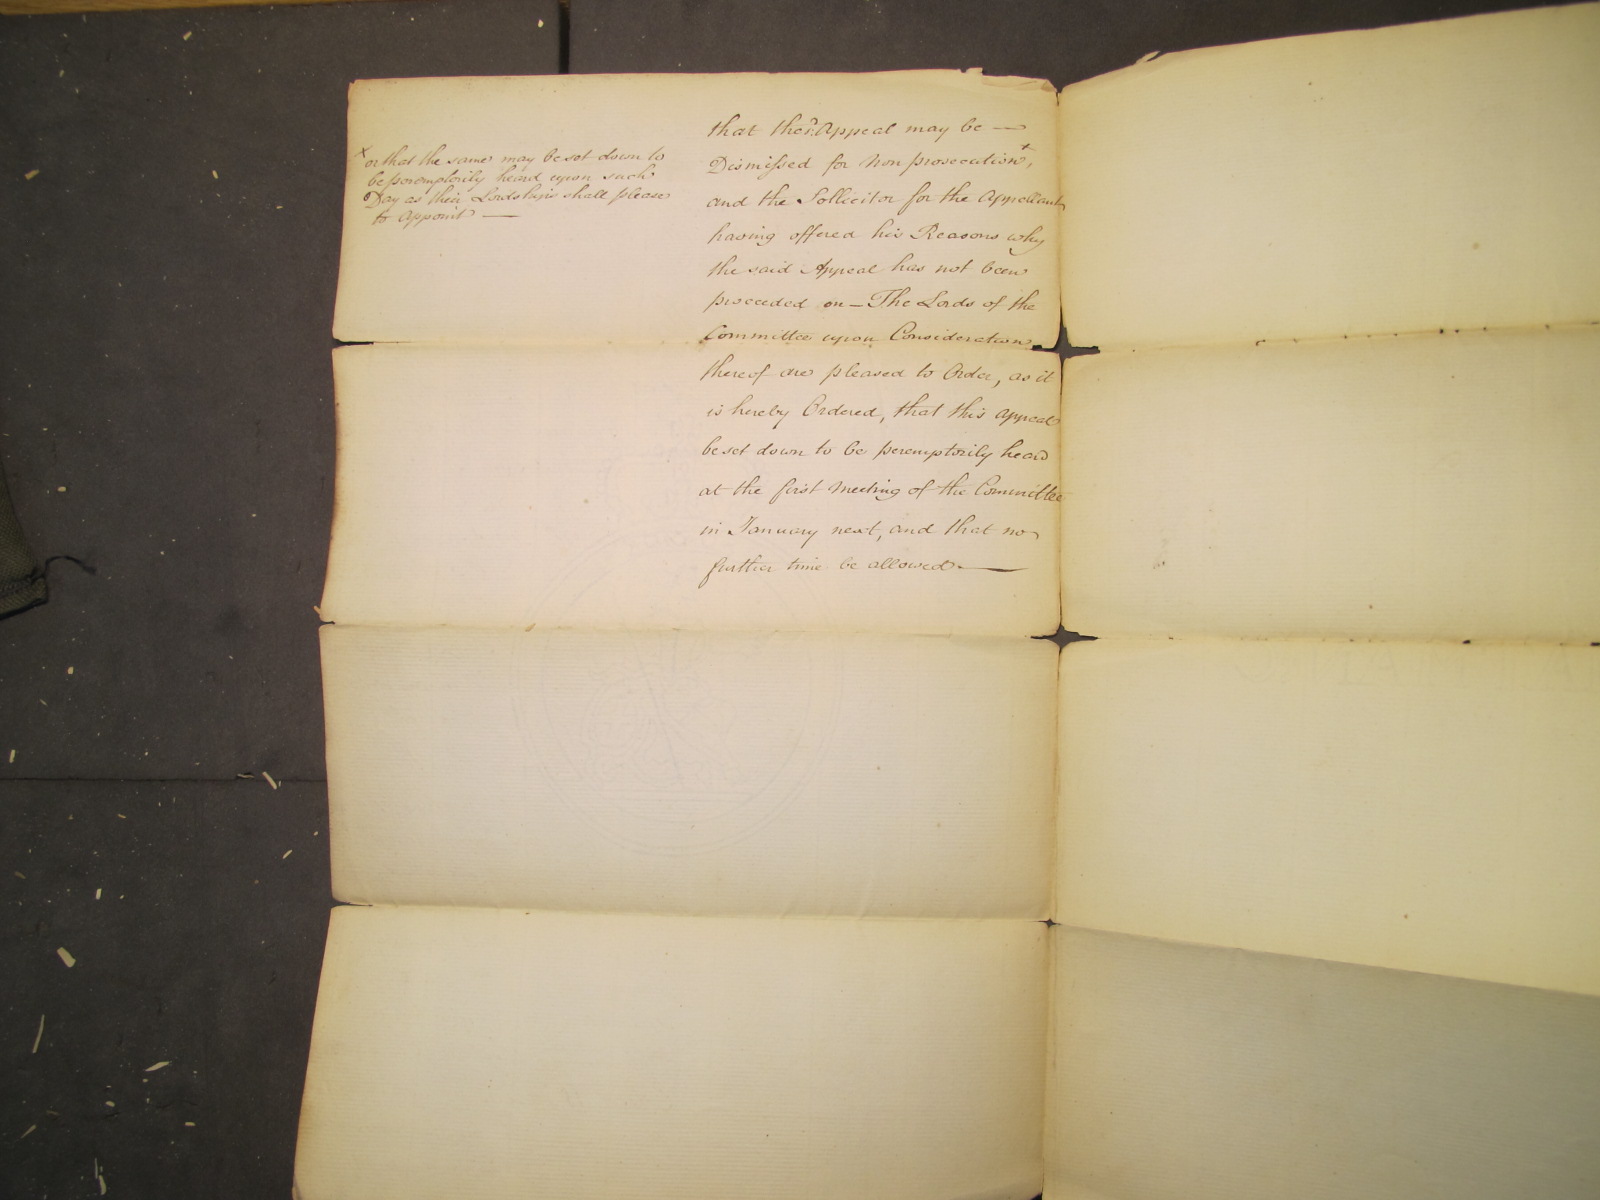 that the sd. Appeal may be —
Dismissed for Non prosecution x,
and the Sollicitor for the Appellant
having offered his Reasons why
the said Appeal has not been
proceeded on — The Lords of the
Committee upon Consideration
thereof are pleased to Order, as it
is hereby Ordered, that this Appeal
be set down to be peremptorily heard
at the first Meeting of the Committee
in January next, and that no
further time be allowed. —
x or that the same may be set down to
be peremptorily heard upon such
Day as their Lordships shall please
to appoint —